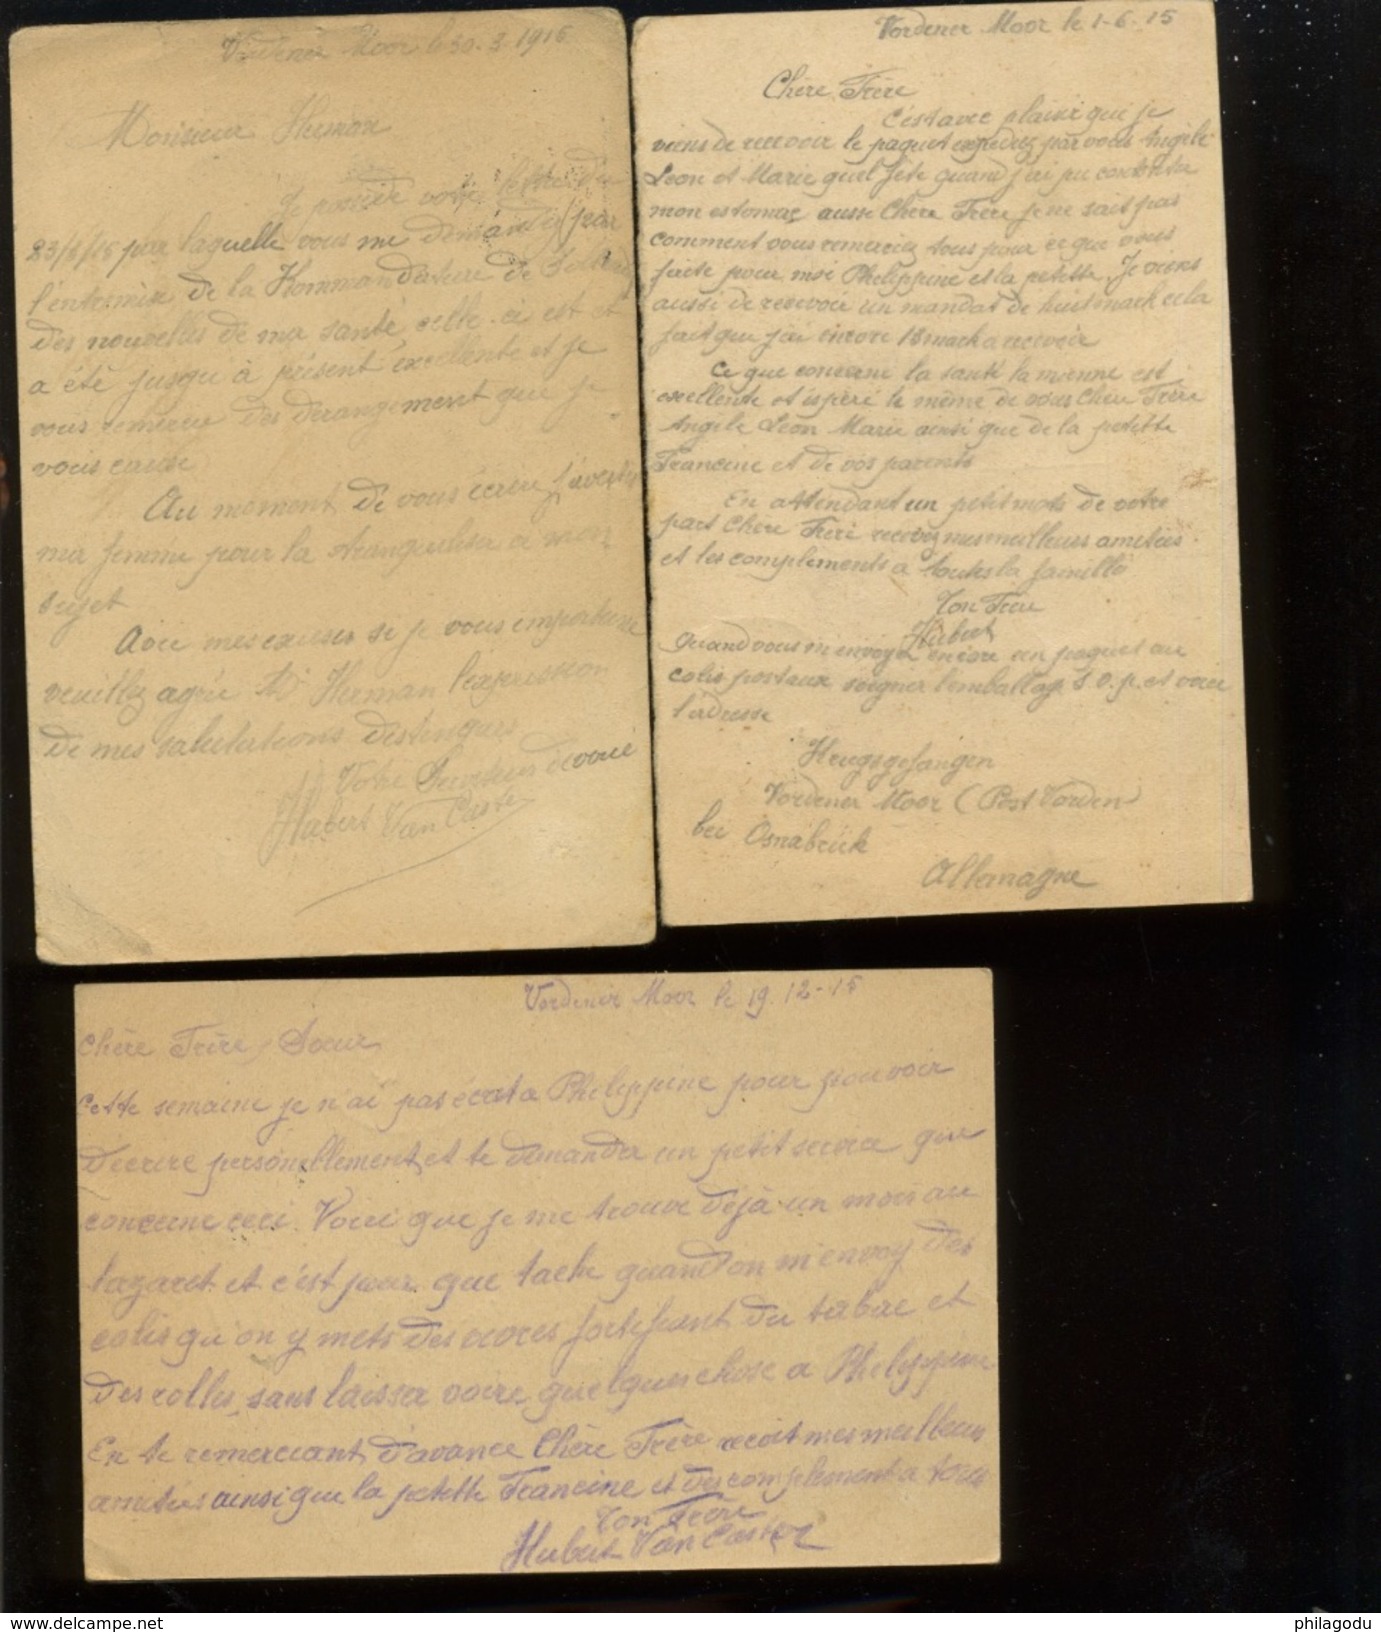 Vördener Moor le 30.3.1916
Monsieur Herman
Je possède votre lettre du
23/8/15 par laquelle vous me demandez (par
l'entremise de la Kommandature de
des nouvelles de ma santé celle-ci est et
a été jusqu'à présent excellente et je
vous remercie des dérangement que je
vous cause
Au moment de vous écrire j'avertis
ma femme pour la tranquiliser a mon
sujet
Avec mes excuses si je vous importune
veuillez agrée Mr Herman l'expression
de mes salutations distingues
Votre Serviteur dévoué
Hubert Van Caster
Vordener Moor le 1-6-15
Chère Frère
C'est avec plaisir qui je
viens de recevoir le paquet expediez par vous Angèle
Leon et Marie quel fête quand j'ai pu contenter
mon estomac aussi Chère Frère je ne sait pas
comment vous remerciez tous pour ce que vous
faite pour moi Philippine et la petitte. Je viens
aussi de recevoir un mandat de huit mark cela
fait que j'ai encore 18 mark a recevoir
Ce que concerne la santé la mienne est
excellente et espère le même de vous Chère Frère
Angèle Leon Marie ainsi que de la petitte
Francine et de vos parents
En attendant un petit mots de votre
part Chère Frère recevez mes meilleurs amitiés
et les complements a toutes la famille
Ton Frère
Hubert
Quand vous m'envoyez encore un paquet au
colis postaux soigner l'emballage S.V.p. et voici
l'adresse
Kriegsgefangen
Vordener Moor (Post Vorden)
bei Osnabrück
Allemagne
Vordener Moor le 19.12-15
Chère Frère, Sœur
Cette semaine je n'ai pas écrit a Philippine pour pouvoir
d'ecrire personellement et te demander un petit service que
concerne ceci. Voici que je me trouve déjà un mois au
lazaret et c'est pour que tache quand on m'envoy des
colis qu'on y mets des vivres fortifiant du tabac et
des rolles, sans laisser voire quelques chose a Philippine
En te remerciant d'avance Chère Frère recoit mes meilleurs
amitiés ainsi que la petitte Francine et des complement a tous
Ton Frère
Hubert Van Caster
www.delcampe.net
philagodu